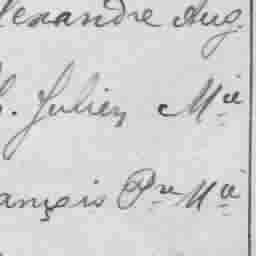 lexandre Aug.
h. Julien Mie
ançois Pre Mie